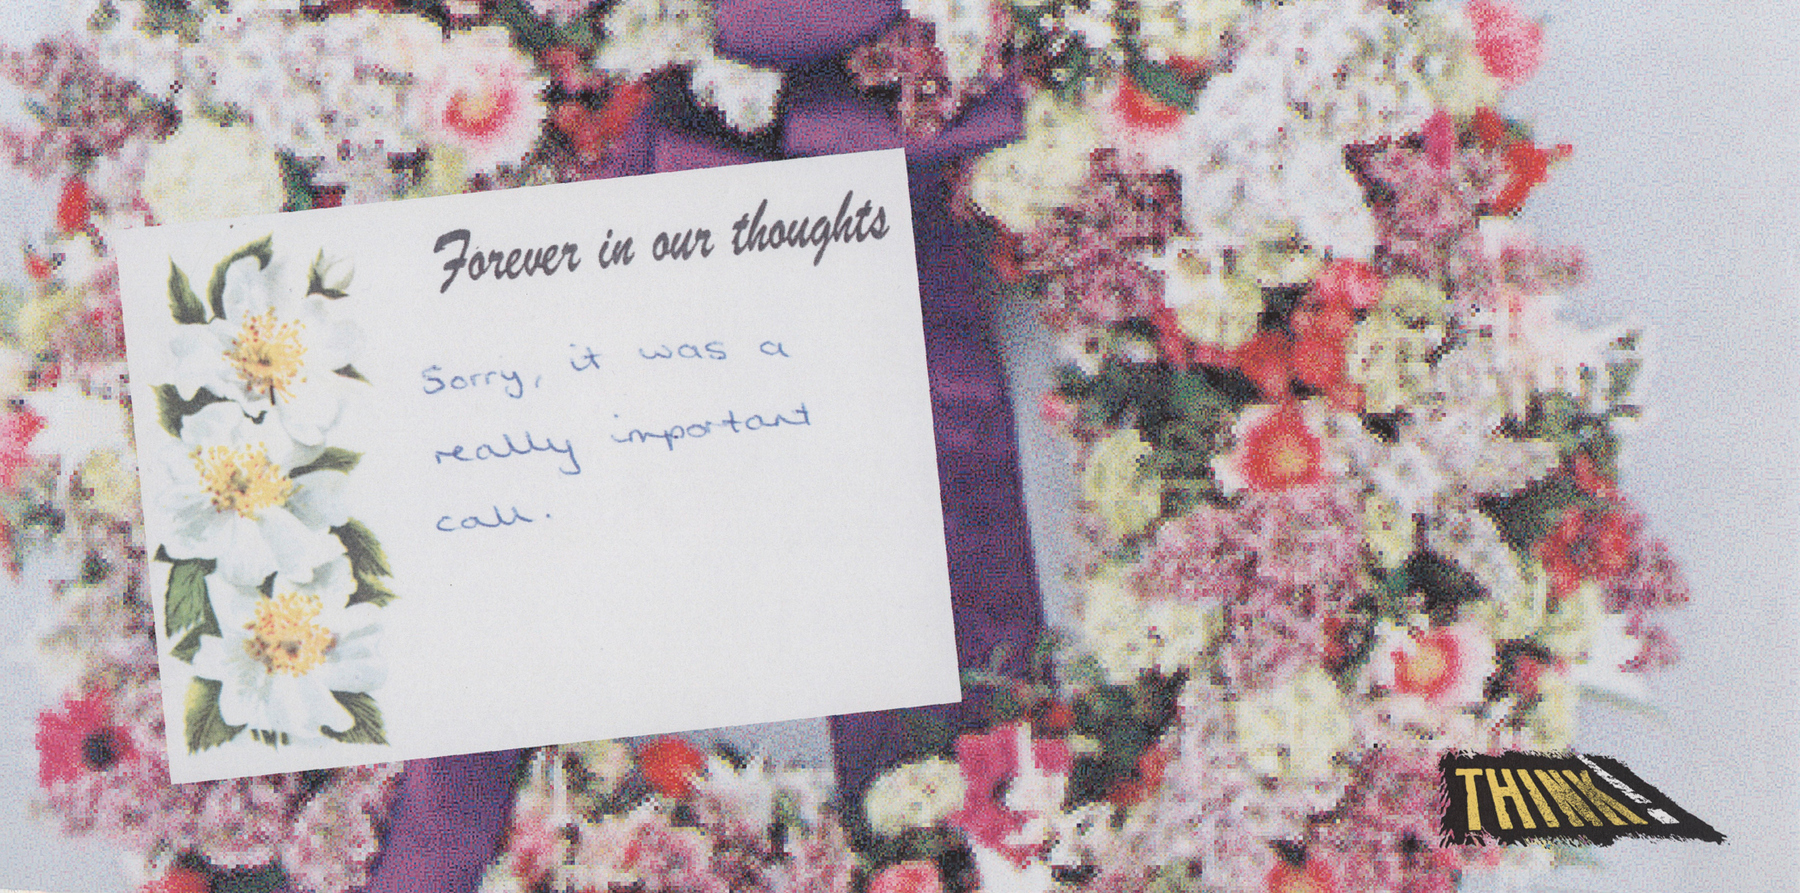 Forever in our thoughts
Sorry, it was a
really important
call.
THINK!